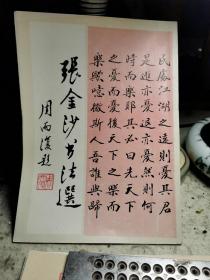 民處江湖之遠則憂其君
是進亦憂退亦憂然則何
時而樂耶其必曰先天下
之憂而憂後天下之樂而
樂歟噫微斯人吾誰與歸
張金沙书法選
周而復题